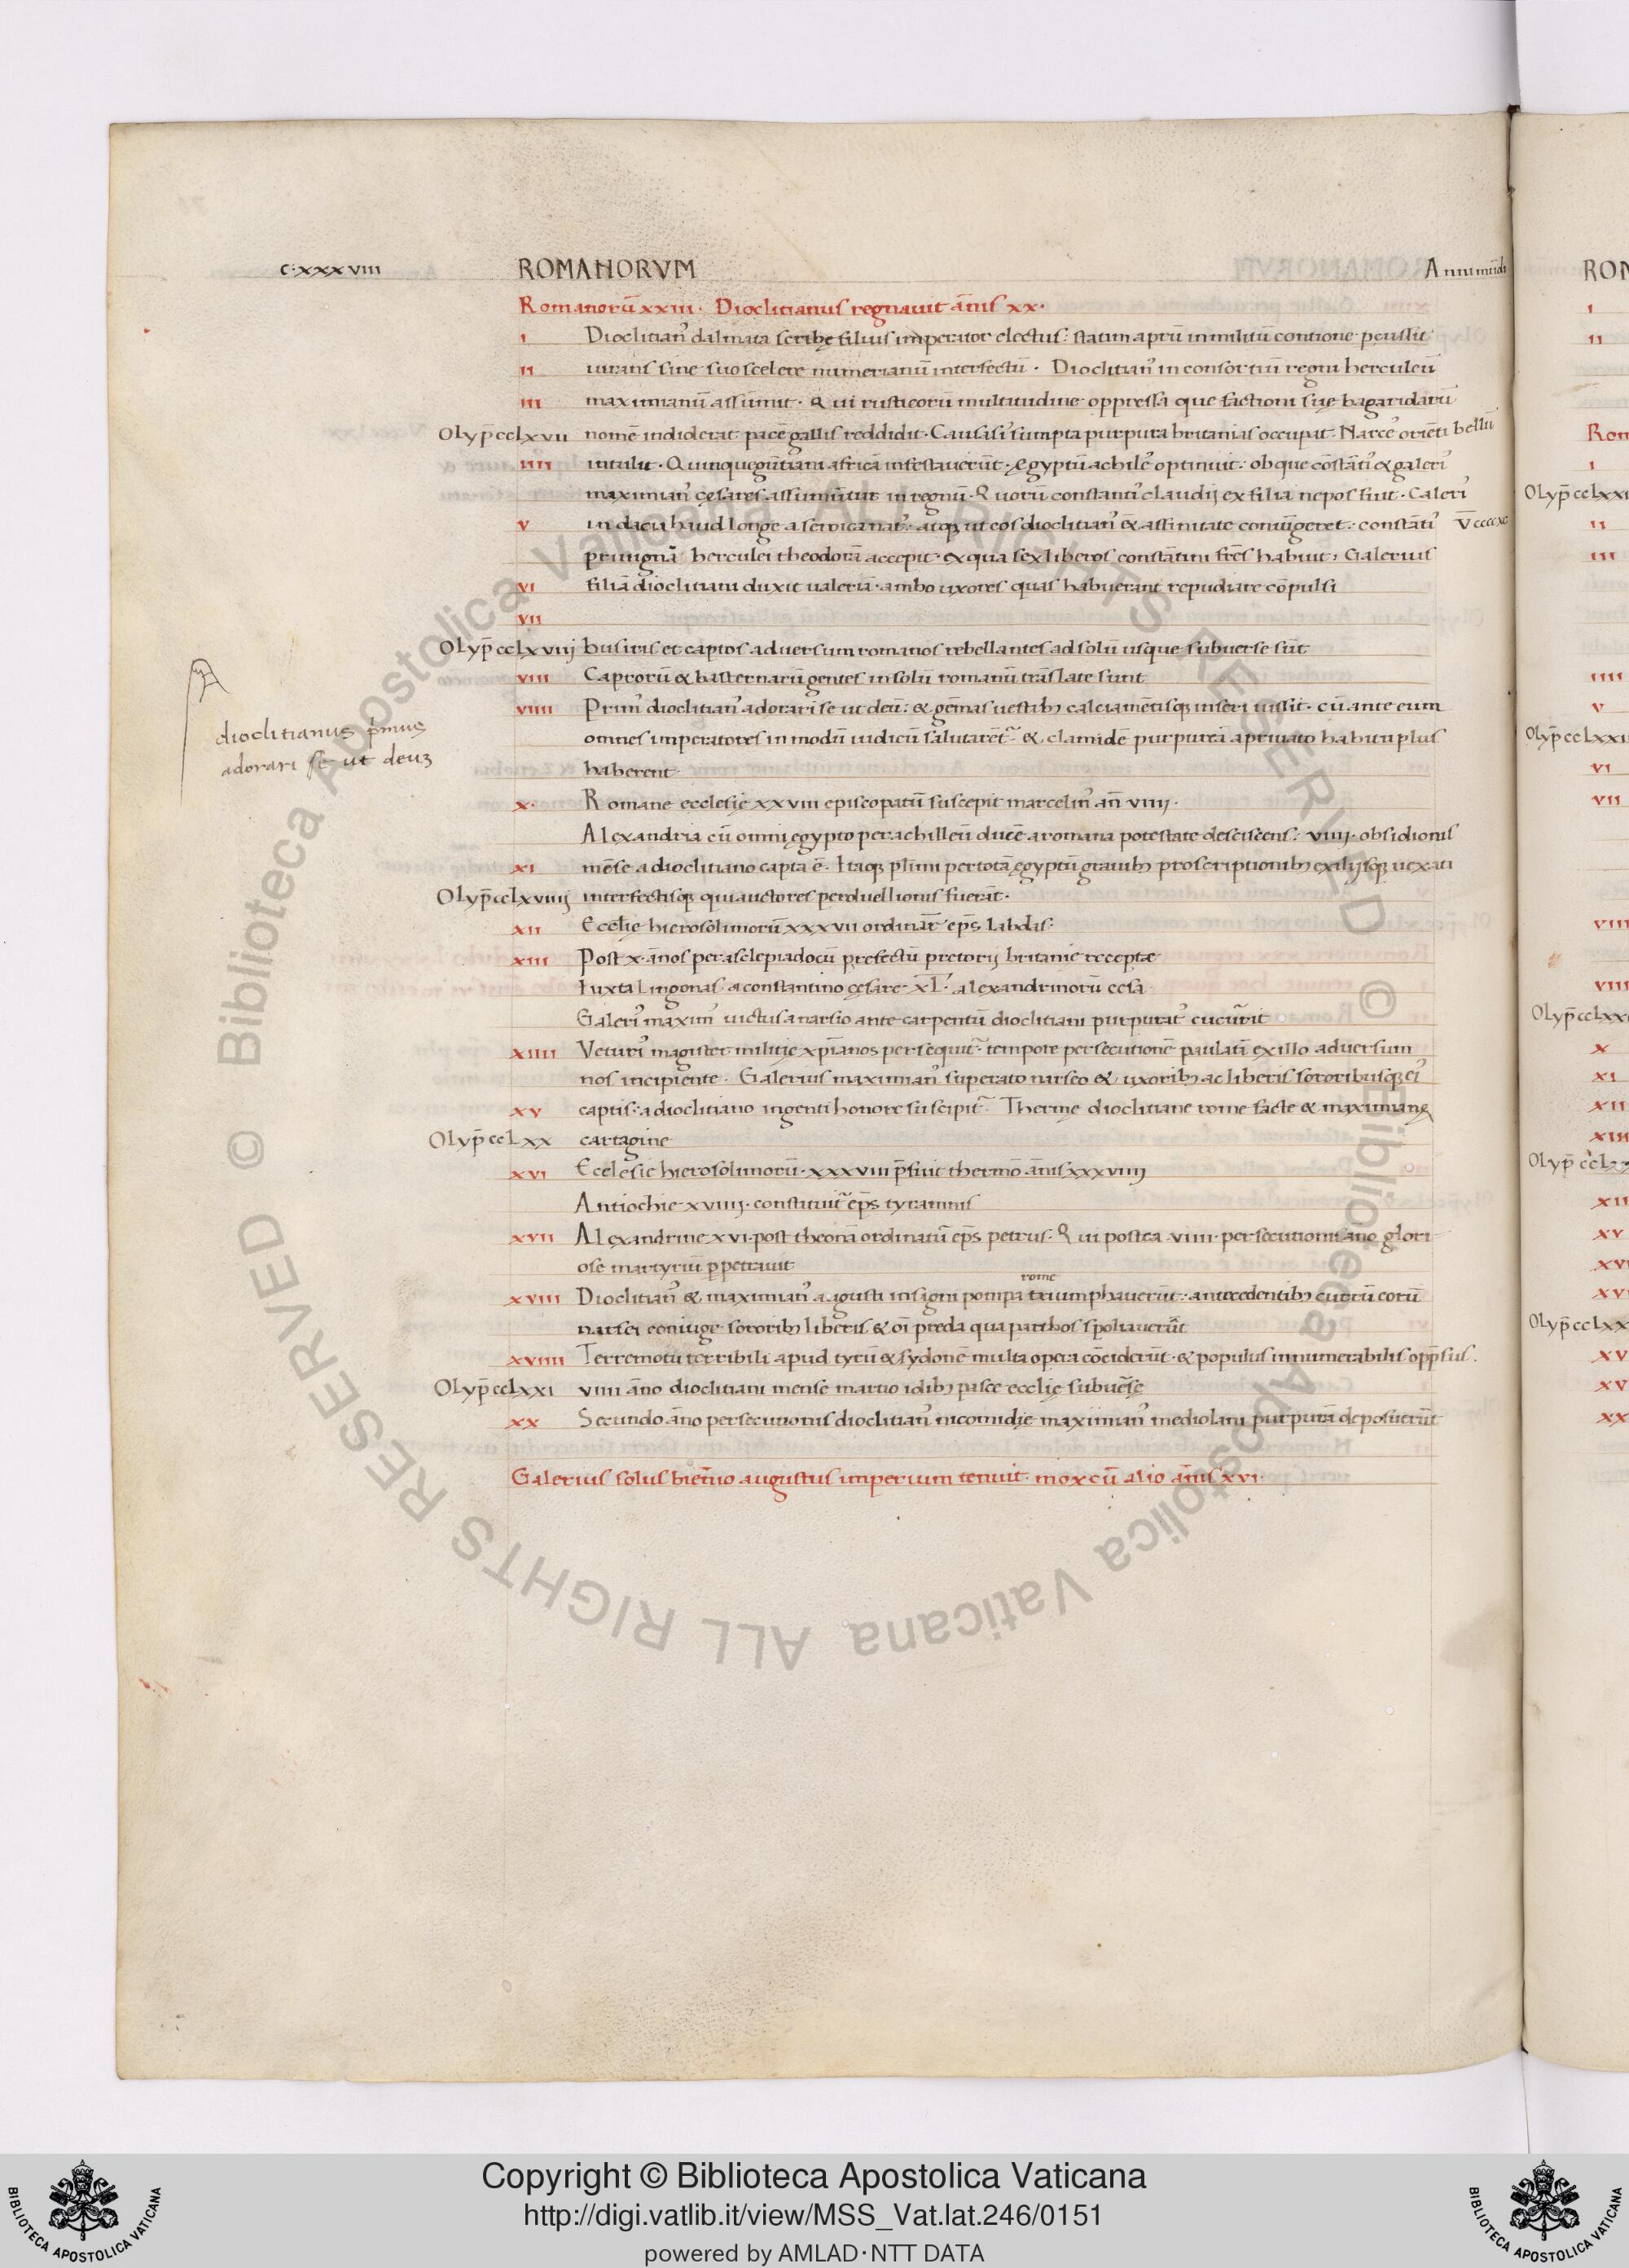 c·xxxviii ROMANORVM Anni mūdi
Romanorū xxiii· Dioclitianus regnauit ānis xx·
i Dioclitian᾽ dalmata scribę filius imperator electus: statim aprū in militū contione pcussit
ii iurans sine suo scelere numerianū interfectū · Dioclitian᾽ in consortiū regni herculeū
iii maximianū assumit · Qui rusticorū multitudine oppressa que factioni suę bagaridarū
Olyp̄ cclxvii nomē indiderat pacē gallis reddidit · Causasi᾽ sumpta purpura britanias occupat Narce᾽ oriēti bellū
iiii intulit · Quinquegētiani africā infestauerūt · Ęgyptū achile᾽ optinuit: ob que cōstāti᾽ & galeri᾽
maximian᾽ cęsares assumūtur in regnū · Quorū constanti᾽ claudij ex filia nepos fuit · Galeri᾽
v in dacia haud longe a serdica nat᾽: atq; ut eos dioclitian᾽ & affinitate coniūgeret: constāti᾽ V̄ccccxc
priuignā herculei theodorā accepit · ex qua sex liberos constātini frēs habuit, Galerius
vi filiā dioclitiani duxit ualeriā · ambo uxores quas habuerant repudiare cōpulsi
vii
Olyp̄ cclxviij busiris et captos aduersum romanos rebellantes ad solū usque subuerse sūt
viii Caprorū & basternarū gentes in solū romanū trāslate sunt
viiii Prim᾽ dioclitian᾽ adorari se ut deū: & gēmas uestib; calciamētisq; inseri iussit · cū ante eum
omnes imperatores in modū iudicū salutarēt᾽ & clamidē purpureā a priuato habitu plus
haberent
dioclitianus p̄mus
adorari se ut deuʒ
x· Romane ecclesię xxviii episcopatū suscepit marcelin᾽ an̄ viiij ·
Alexandria cū omni ęgypto per achilleū ducē a romana potestate desciscens: viiij · obsidionis
xi mēse a dioclitiano capta ē · Itaq; plīmi per totā ęgyptū grauib; proscriptionib; exilijsq; uexati
Olyp̄ cclxviiij interfectisq; qui auctores perduellionis fuerāt ·
xii Eccłię hierosolimorū xxxvii ordinat᾽ ep̄s labdas·
xiii Post x · ānos per asclepiadocū prefectū pretorij britanie receptæ
Iuxta lingonas · a constantino cęsare x̄l̄ · alexandrinorū cesa
Galeri᾽ maxim᾽ uictus a narsio ante carpentū dioclitiani purpurat᾽ cucurrit
xiiii Veturi᾽ magister militię xp̄ianos persequit᾽ tempore persecutionē paulatī ex illo aduersum
nos incipiente · Galerius maximian᾽ superato narseo & uxorib; ac liberis sororibusq; ei᾽
xv captis: a dioclitiano ingenti honore suscipit᾽ Therme dioclitiane rome facte & maximianę
Olyp̄ cclxx cartagine
xvi Ecclesie hierosolimorū · xxxviii p̄fuit thermō ānis xxxviiij
Antiochie xviiij · constituit᾽ ep̄s tyrannis
xvii Alexandrine xvi · post theonā ordinatū ep̄s petrus · Qui postea viiii · persecutionis ano glori
ose martyriū ppetrauit
rome
xviii Dioclitian᾽ & maximian᾽ augusti insigni pompa triumphauerūt: antecedentib; currū eorū
narsei coniuge sororib; liberis & oī preda qua parthos spoliauerūt
xviiii Terremotu terribili apud tyrū & sydonē multa opera cōciderūt · & populus innumerabilis opp̄sus.
Olyp̄ cclxxi viiii āno dioclitiani mense martio idib; pasce eccłię subuēse
xx Secundo āno persecutionis dioclitian᾽ nicomidię maximian᾽ mediolani purpurā deposuerūt
Galerius solus biēnio augustus imperium tenuit · mox cū alio ānis xvi·
ROM
i
ii
Rom
i
Olyp̄ cclxxi
ii
iii
iiii
v
Olyp̄ cclxxi
vi
vii
viii
viiii
Olyp̄ cclxx
x
xi
xii
xiii
Olyp̄ cclxx
xii
xv
xvi
xv
Olyp̄ cclxx
xv
xv
xx
Biblioteca Apostolica Vaticana ALL RIGHTS RESERVED ©
Biblioteca Apostolica Vaticana ALL RIGHTS RESERVED ©
BIBLIOTECA APOSTOLICA VATICANA
Copyright © Biblioteca Apostolica Vaticana
http://digi.vatlib.it/view/MSS_Vat.lat.246/0151
powered by AMLAD·NTT DATA
BIBLIOTECA APOSTOLICA VATICANA